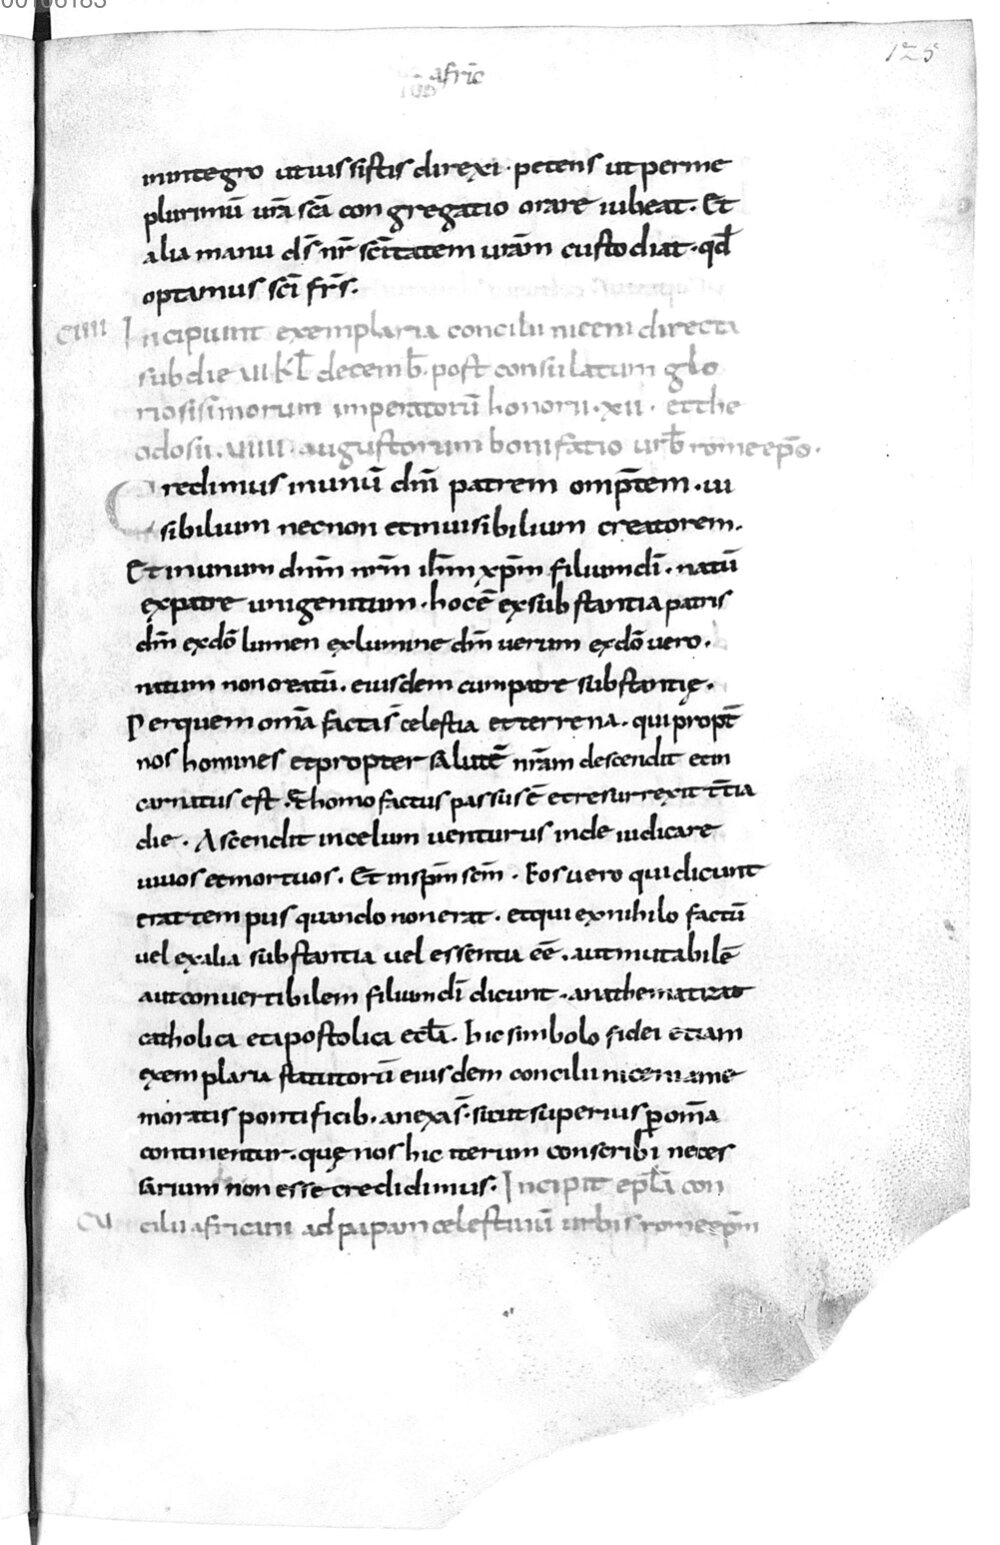 00106185
125
afric̄
inintegro utiussistis direxi · petens ut perme
plurimū urā scā congregatio orare iubeat · Et
alia manu ds̄ nr̄ sc̄itatem urām custodiat · qđ
optamus sc̄i frs̄ ·
CIIII Incipiunt exemplaria concilii niceni directa
sub die VII kł decemb̄ · post consulatum glo
riosisimorum imperatorū honorii · XII · et the
odosii · VIIII · augustorum bonifatio urb̄ rome ep̄o ·
Credimus in unū dm̄ patrem omp̄tem · ui
sibilium necnon et inuisibilium creatorem ·
Et in unum dnm̄ nrm̄ ihm̄ xp̄m filium dī · natū
ex patre unigenitum · hoc ē ex substantia patris
dm̄ ex dō lumen ex lumine dm̄ uerum ex dō uero ·
natum non creatū · eiusdem cum patre substantię ·
Per quem omā facta s̄ celestia et terrena · qui propt̄
nos homines et propter salutē nrām descendit et in
carnatus est · Et homo factus passus ē et resurrexit t̄tia
die · Ascendit in celum uenturus inde iudicare
uiuos et mortuos · Et in spm̄ scm̄ · Eos uero qui dicunt
erat tempus quando non erat · et qui ex nihilo factū
uel ex alia substantia uel essentia eē · aut mutabilē
aut conuertibilem filium dī dicunt · anathematizat
catholica et apostolica eccl̄a · hic simbolo fidei etiam
exemplaria statutorū eiusdem concilii niceni a me
moratis pontificib · anexa s̄ · sicut superius p̄ omā
continentur · quę nos hic iterum conscribi neces
sarium non esse credidimus · Incipit epl̄a con
CU cilii africani ad papam celestinū urbis rome ep̄m